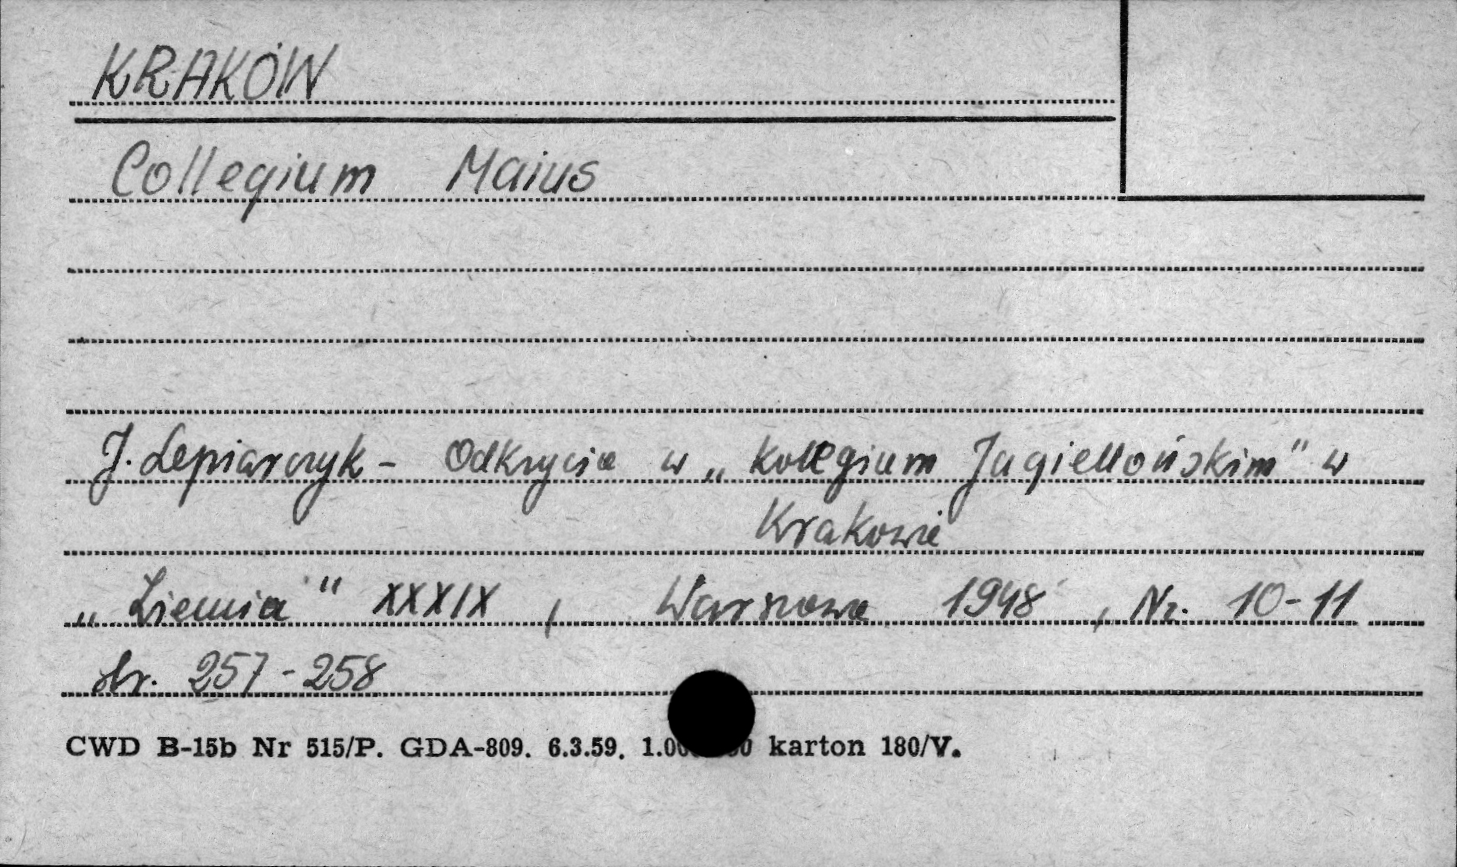 KRAKÓW
Collegium Maius
J. Lepiarczyk - Odkrycie w „Kollegium Jagiellońskim" w
Krakowie
„Ziemia" XXXIX, Warszawa 1948, Nr. 10-11
str. 257-258
CWD B-15b Nr 515/P. GDA-809. 6.3.59. 1.00 0 karton 180/V.